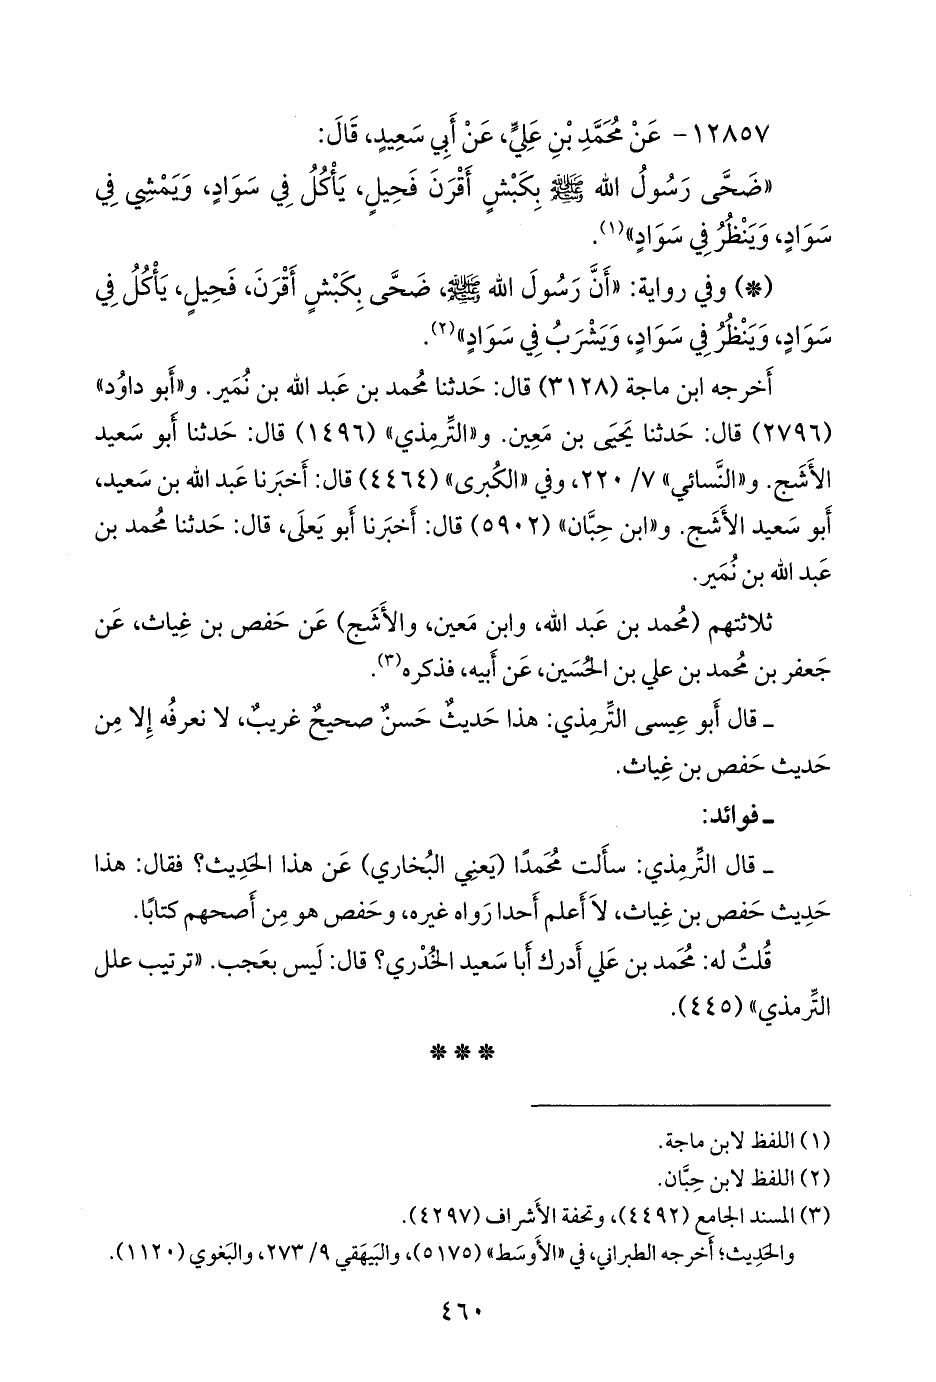 ١٢٨٥٧- عَنْ مُحَمَّدِ بْنِ عَلِيٍّ، عَنْ أَبِي سَعِيدٍ، قَالَ:
«ضَحَّى رَسُولُ الله ﷺ بِكَبْشٍ أَقْرَنَ فَحِيلٍ، يَأْكُلُ فِي سَوَادٍ، وَيَمْشِي فِي
سَوَادٍ، وَيَنْظُرُ فِي سَوَادٍ»(١).
(*) وفي رواية: «أَنَّ رَسُولَ الله ﷺ، ضَحَّى بِكَبْشٍ أَقْرَنَ، فَحِيلٍ، يَأْكُلُ فِي
سَوَادٍ، وَيَنْظُرُ فِي سَوَادٍ، وَيَشْرَبُ فِي سَوَادٍ»(٢).
أَخرجه ابن ماجة (٣١٢٨) قال: حَدثنا مُحمد بن عَبد الله بن نُمَير. و«أَبو داوُد»
(٢٧٩٦) قال: حَدثنا يَحيَى بن مَعِين. و«التِّرمِذي» (١٤٩٦) قال: حَدثنا أَبو سَعيد
الأَشَج. و«النَّسائي» ٧/ ٢٢٠، وفي «الكُبرى» (٤٤٦٤) قال: أَخبَرنا عَبد الله بن سَعيد،
أَبو سَعيد الأَشَج. و«ابن حِبَّان» (٥٩٠٢) قال: أَخبَرنا أَبو يَعلَى، قال: حَدثنا مُحمد بن
عَبد الله بن نُمَير.
ثلاثتهم (مُحمد بن عَبد الله، وابن مَعين، والأَشَج) عَن حَفص بن غِياث، عَن
جَعفر بن مُحمد بن علي بن الحُسَين، عَن أَبيه، فذكره(٣).
ـ قال أَبو عِيسى التِّرمِذي: هذا حَديثٌ حَسنٌ صحيحٌ غريبٌ، لا نعرفُه إِلا مِن
حَديث حَفص بن غِياث.
ـ فوائد:
ـ قال التِّرمِذي: سأَلت مُحَمدًا (يَعني البُخاري) عَن هذا الحَدِيث؟ فقال: هذا
حَدِيث حَفص بن غِياث، لاَ أَعلم أَحدا رَواه غيره، وحَفص هو مِن أَصحهم كتابًا.
قُلتُ له: مُحَمد بن عَلي أَدرك أَبا سَعيد الخُدْري؟ قال: لَيس بعَجب. «ترتيب علل
التِّرمذي» (٤٤٥).
* * *
(١) اللفظ لابن ماجة.
(٢) اللفظ لابن حِبَّان.
(٣) المسند الجامع (٤٤٩٢)، وتحفة الأَشراف (٤٢٩٧).
والحَدِيث؛ أَخرجه الطبراني، في «الأَوسَط» (٥١٧٥)، والبَيهَقي ٩/ ٢٧٣، والبَغوي (١١٢٠).
٤٦٠